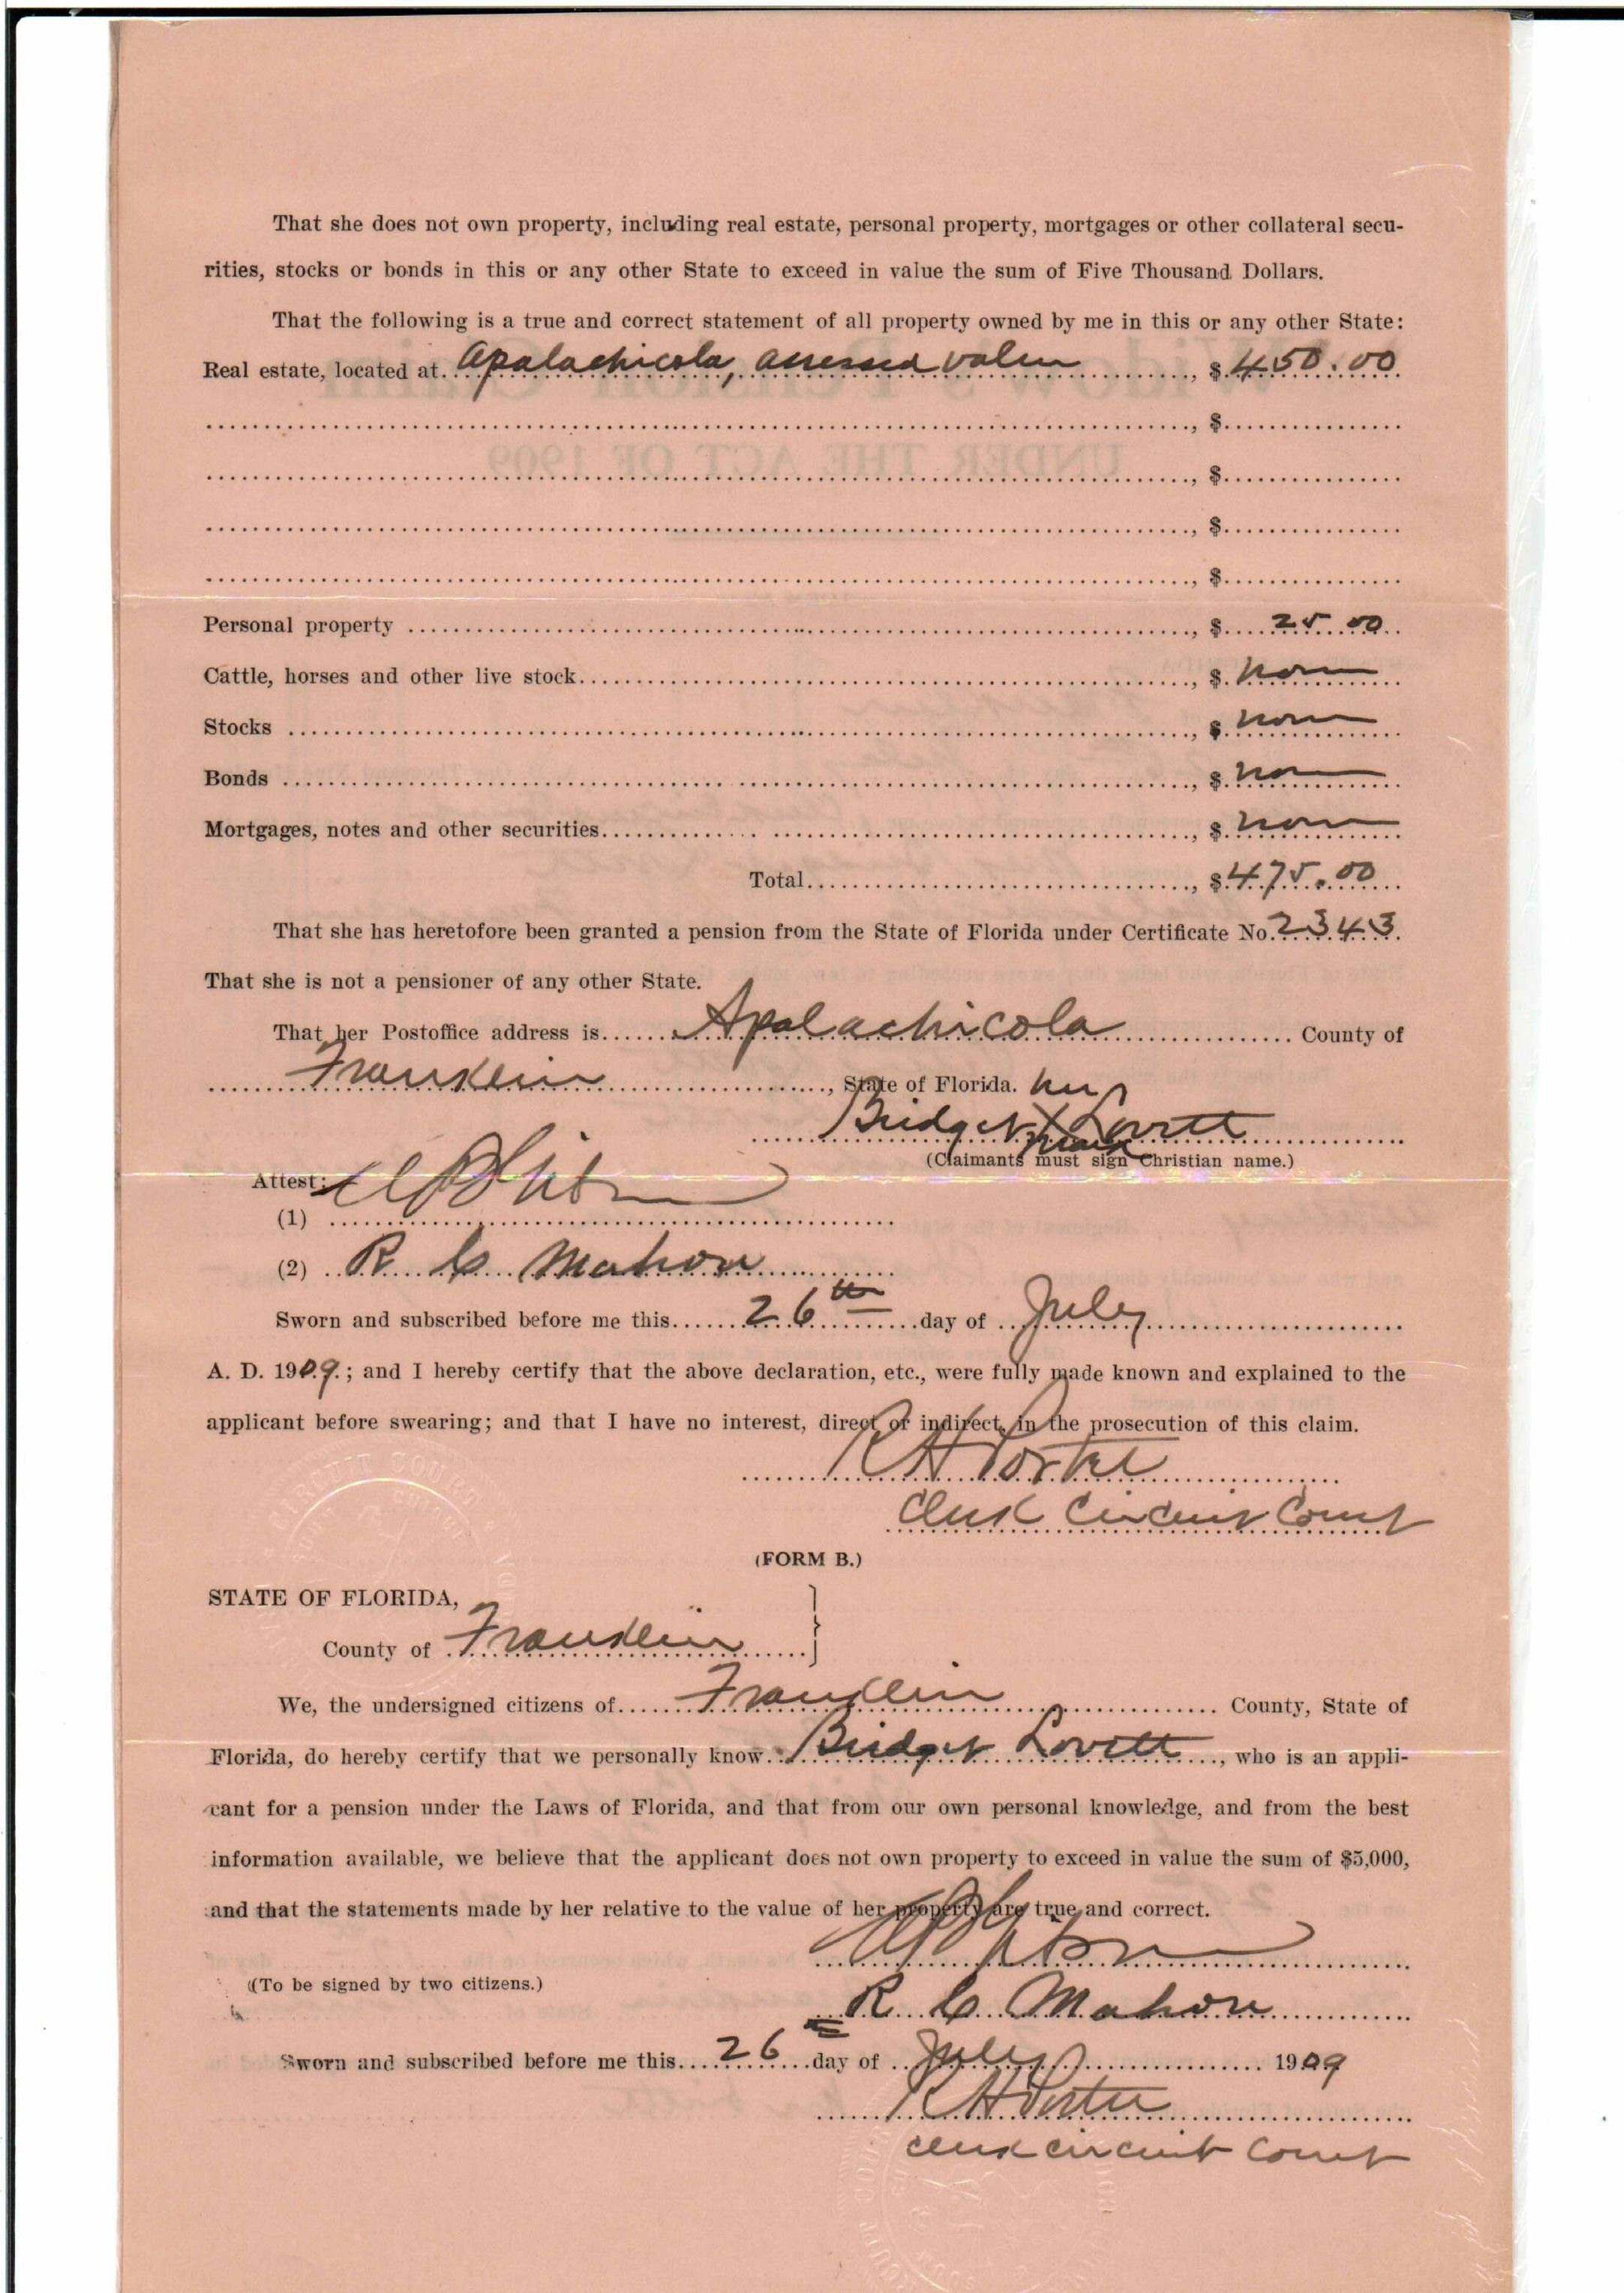 That she does not own property, including real estate, personal property, mortgages or other collateral secu-
rities, stocks or bonds in this or any other State to exceed in value the sum of Five Thousand Dollars.
That the following is a true and correct statement of all property owned by me in this or any other State:
Real estate, located at Apalachicola, assessed value, $450.00
, $
, $
, $
, $
Personal property, $ 25 00
Cattle, horses and other live stock, $ none
Stocks, $ none
Bonds, $ none
Mortgages, notes and other securities, $ none
Total, $475.00
That she has heretofore been granted a pension from the State of Florida under Certificate No. 2343.
That she is not a pensioner of any other State.
That her Postoffice address is Apalachicola County of
Franklin, State of Florida. her
Bridget X Lovett
mark
(Claimants must sign Christian name.)
Attest:
(1)
(2) R C Mahon
Sworn and subscribed before me this 26th day of July
A. D. 1909.; and I hereby certify that the above declaration, etc., were fully made known and explained to the
applicant before swearing; and that I have no interest, direct or indirect, in the prosecution of this claim.
R H Porter
Clerk Circuit Court
(FORM B.)
STATE OF FLORIDA,
County of Franklin
We, the undersigned citizens of Franklin County, State of
Florida, do hereby certify that we personally know Bridget Lovett, who is an appli-
cant for a pension under the Laws of Florida, and that from our own personal knowledge, and from the best
information available, we believe that the applicant does not own property to exceed in value the sum of $5,000,
and that the statements made by her relative to the value of her property are true and correct.
(To be signed by two citizens.)
R C Mahon
Sworn and subscribed before me this 26 day of July 1909
R H Porter
Clerk Circuit Court